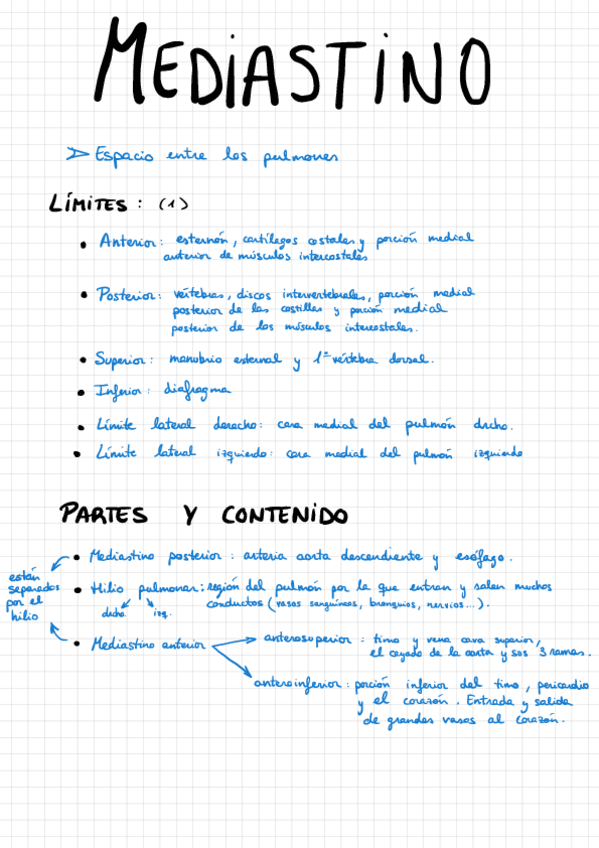 MEDIASTINO
➢ Espacio entre los pulmones
LÍMITES : (1)
• Anterior : esternón, cartílagos costales y porción medial
anterior de músculos intercostales
• Posterior : vértebras, discos intervertebrales, porción medial
posterior de las costillas y porción medial
posterior de los músculos intercostales.
• Superior : manubrio esternal y 1ª vértebra dorsal.
• Inferior : diafragma
• Límite lateral derecho : cara medial del pulmón drcho.
• Límite lateral izquierdo : cara medial del pulmón izquierdo
PARTES Y CONTENIDO
• Mediastino posterior : arteria aorta descendiente y esófago.
están
separados
por el
hilio
• Hilio pulmonar : región del pulmón por la que entran y salen muchos
conductos (vasos sanguíneos, bronquios, nervios...).
drcho. izq.
• Mediastino anterior
anterosuperior : timo y vena cava superior,
el cayado de la aorta y sus 3 ramas.
anteroinferior : porción inferior del timo, pericardio
y el corazón. Entrada y salida
de grandes vasos al corazón.